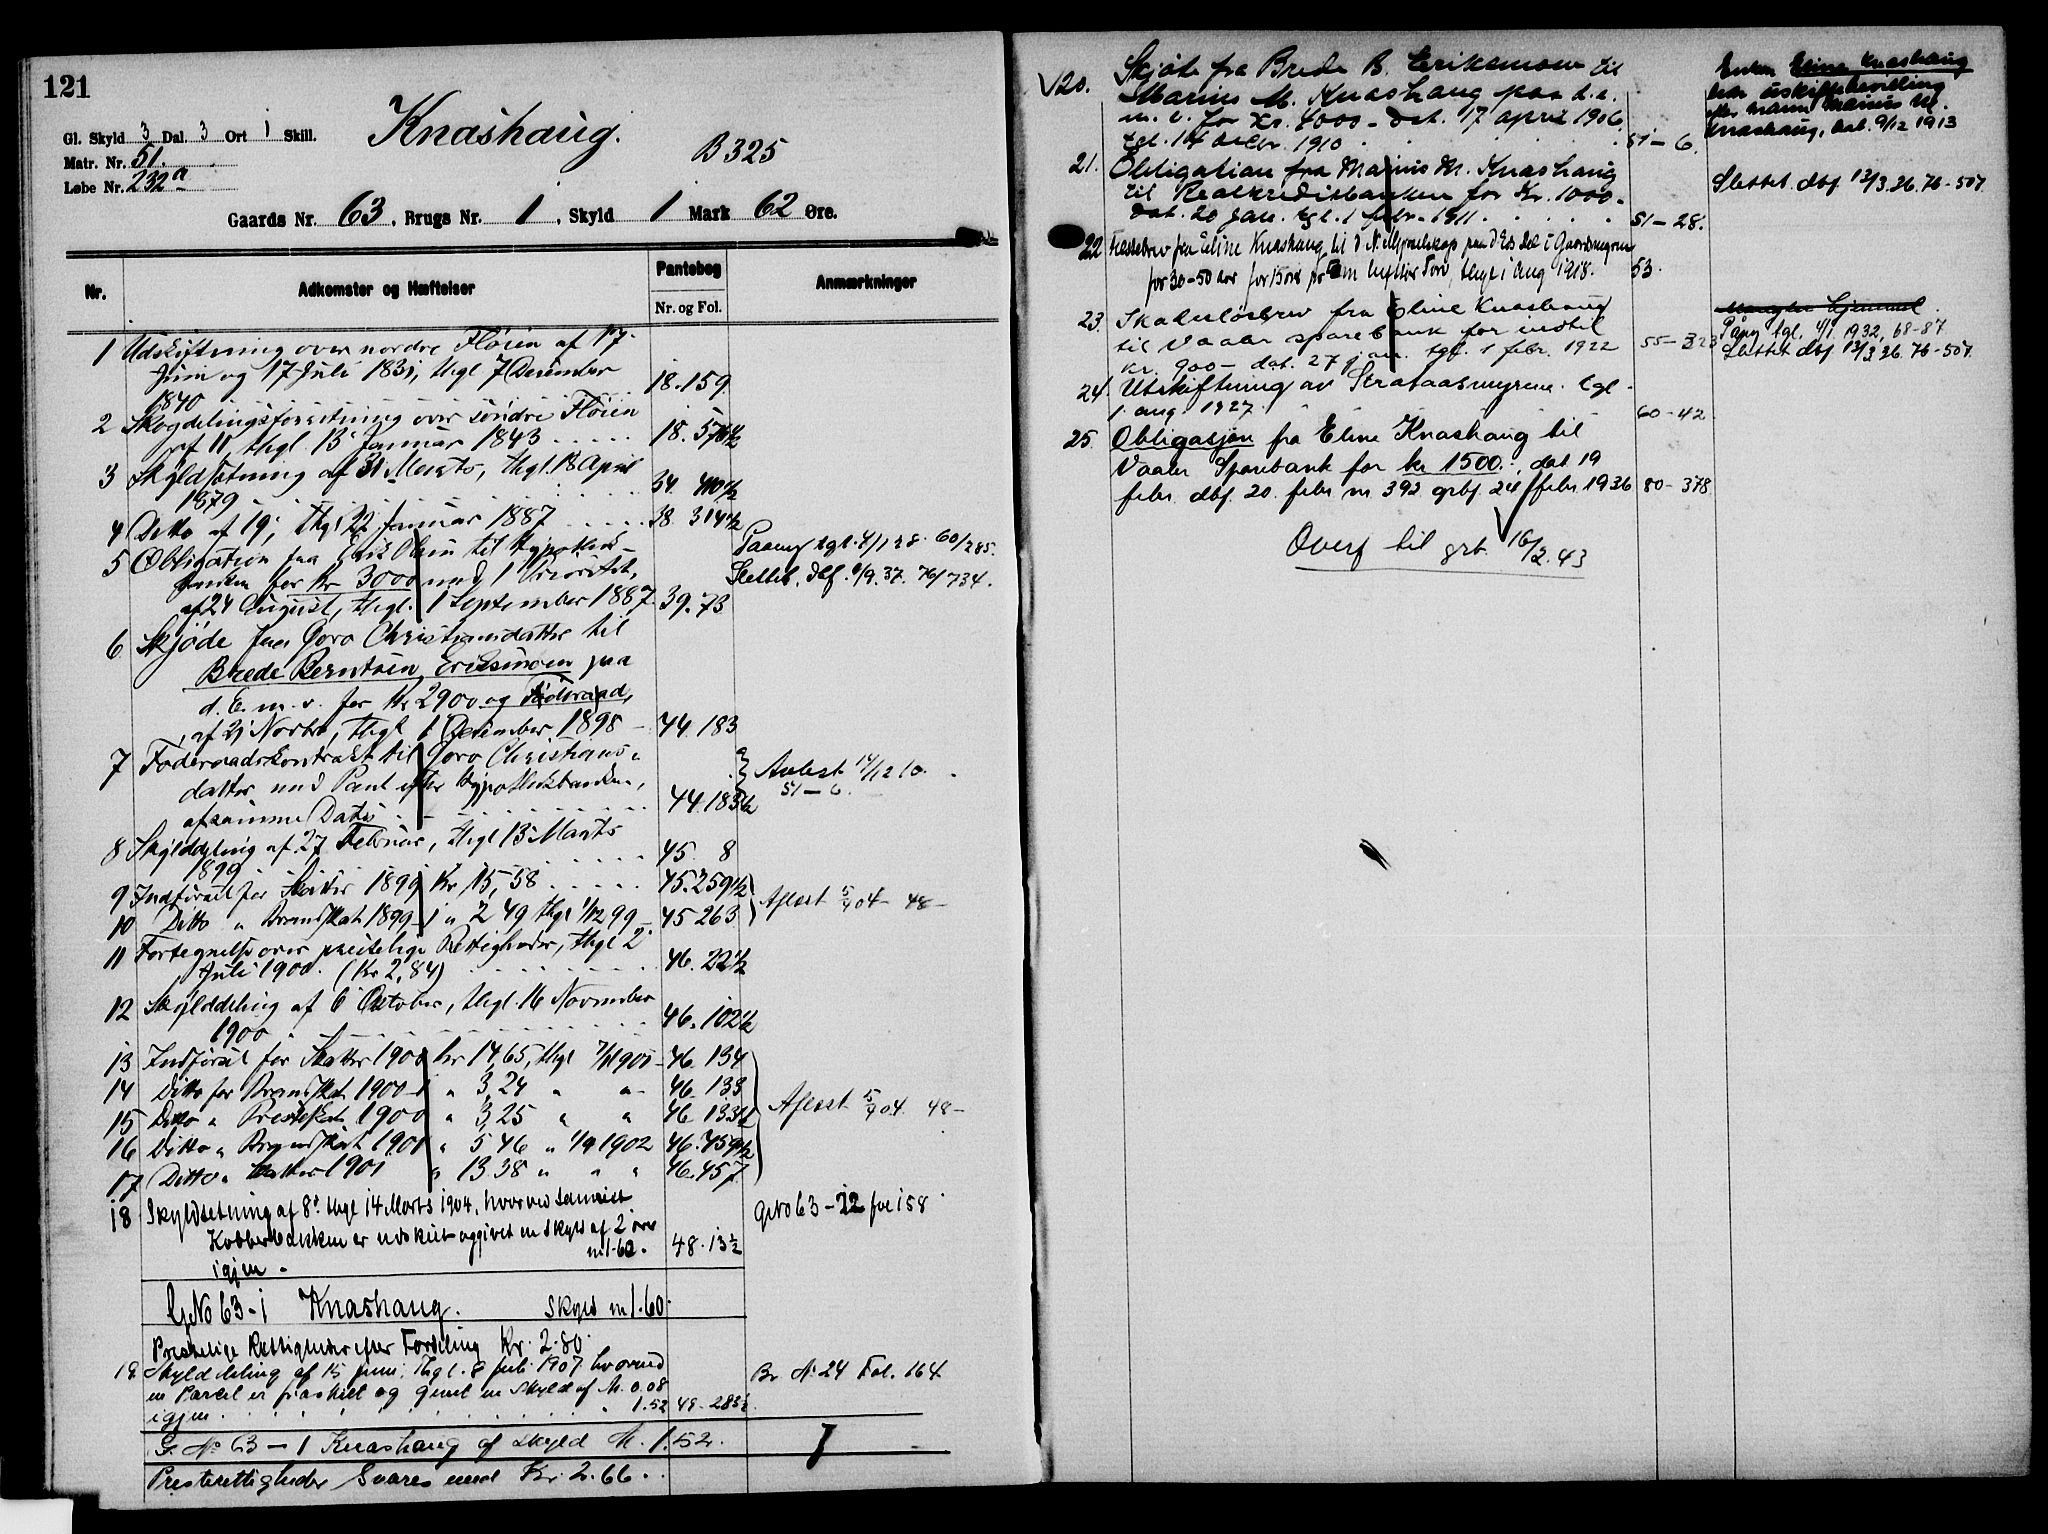 121
Gl. Skyld 3 Dal. 3 Ort 1 Skill.
Matr. Nr. 51.
Løbe Nr. 232a
Knashaug.
B 325
Gaards Nr. 63, Brugs Nr. 1, Skyld 1 Mark 62 Øre.
Nr.
Adkomster og Hæftelser
Pantebog
Nr. og Fol.
Anmærkninger
1 Udskiftning over nordre Fløien af 17
Juni og 17 Juli 1831, thgl 7 December
1840 18. 159
2 Skogdelingsforretning over søndre Fløien
af 11, thgl. 13 Januar 1843 18. 576½
3 Skyldsætning af 31 Marts, thgl. 18 April
1879 34. 410½
4 Ditto af 19, thgl 22 Januar 1887 38. 314½
5 Obligation fra Erik Olsen til Hypothek-
banken for Kr 3000 med 1 Prioritet,
af 24 August, thgl. 1 September 1887 39. 73
Paany tgl. 4/1 28. 60/285.
Slettet. dbf. 6/9. 37. 76/734.
6 Skjøde fra Goro Christiansdatter til
Brede Berntsen Eriksmoen paa
d. E. m. v. for Kr 2900 og Føderaad,
af 21 Novbr, thgl 1 December 1898 44. 183
7 Føderaadskontrakt til Goro Christians-
datter med Pant efter Hypothekbanken,
af samme Dato 44. 183½
Avlest 14/12 10.
51 – 6.
8 Skylddeling af 27 Februar, thgl 13 Marts
1899 45. 8
9 Indførsel for Skatter 1899 Kr 15,58 45. 259½
10 Ditto " Brandskat 1899 " 2 49 thgl 1/12 99 45 263
Aflæst 5/9 04 – 48 –
11 Fortegnelse over prestelige Rettigheder, thgl 2
Juli 1900. (Kr 2,84) 46. 22½
12 Skylddeling af 6 October, thgl. 16 November
1900 46. 102½
13 Indførsel for Skatter 1900 Kr 14,65, thgl 7/1 1901 – 46. 134
14 Ditto for Brandskat 1900 " 3,24 " " 46 133
15 Ditto " Presteskat 1900 " 3,25 " " 46 133½
16 Ditto " Brandskat 1901 " 5 46 " 1/9 1902 46. 459½
17 Ditto " Skatter 1901 " 13 38 " " " 46. 457
Aflæst 5/9 04. 48 –
18 Skyldsetning af 8de thgl 14 Marts 1904, hvorved
er udskilt og givet en skyld af 2 øre
m 1-60.
igjen - 48. 13½
GNo 63 – 22 fol 158
GNo 63 - 1 Knashaug. Skyld m 1.60
Prestelige Rettigheder efter Fordeling Kr. 2.80
19. Skylddeling af 15 juni, thgl. 8 juli 1907 hvorved
en Parcel er fraskilt og givet en skyld af M. 0.08
igjen 1.52 49 - 283½
Br. Nr 24 Fol. 164
G. Nr 63 – 1 Knashaug af skyld M. 1.52.
Presterettigheder svares med Kr. 2.66.
√20. Skjøte fra Brede B. Eriksmoen til
Marius M. Knashaug paa d. e.
m. v. for Kr. 4000 – dat. 17 april 1906
tgl. 14 decbr. 1910 51 – 6.
Enken Eline Knashaug
har uskiftebevilling
efter mann Marius M.
Knashaug, dat. 9/12 1913
21. Obligation fra Marius M. Knashaug
til Realkreditbanken for Kr. 1000 –
dat. 20 jan. tgl. 1 febr. 1911 51 – 28.
Slettet dbf 13/3.36. 76-507
22 Festebrev fra Eline Knashaug til
for 30 - 50 aar thgl 1 Aug 1918. 53.
23. Skadesløsbrev fra Eline Knashaug
til Vaaler sparebank for indtil
kr. 900 – dat. 27 jan. tgl. 1 febr. 1922 55 – 323
Mangler hjemmel.
Påny tgl. 4/1 1932, 68-87
Slettet dbf 13/3 36. 76-507.
24. Utskiftning av Strataasmyrene. tgl.
1. aug. 1927. 60 – 42
25. Obligasjon fra Eline Knashaug til
Vaaler Sparebank for kr 1500. –, dat 19
febr. dbf. 20. febr nr 392 grbf. 24 febr 1936 80 – 378
Overf til grb. 16/2. 43